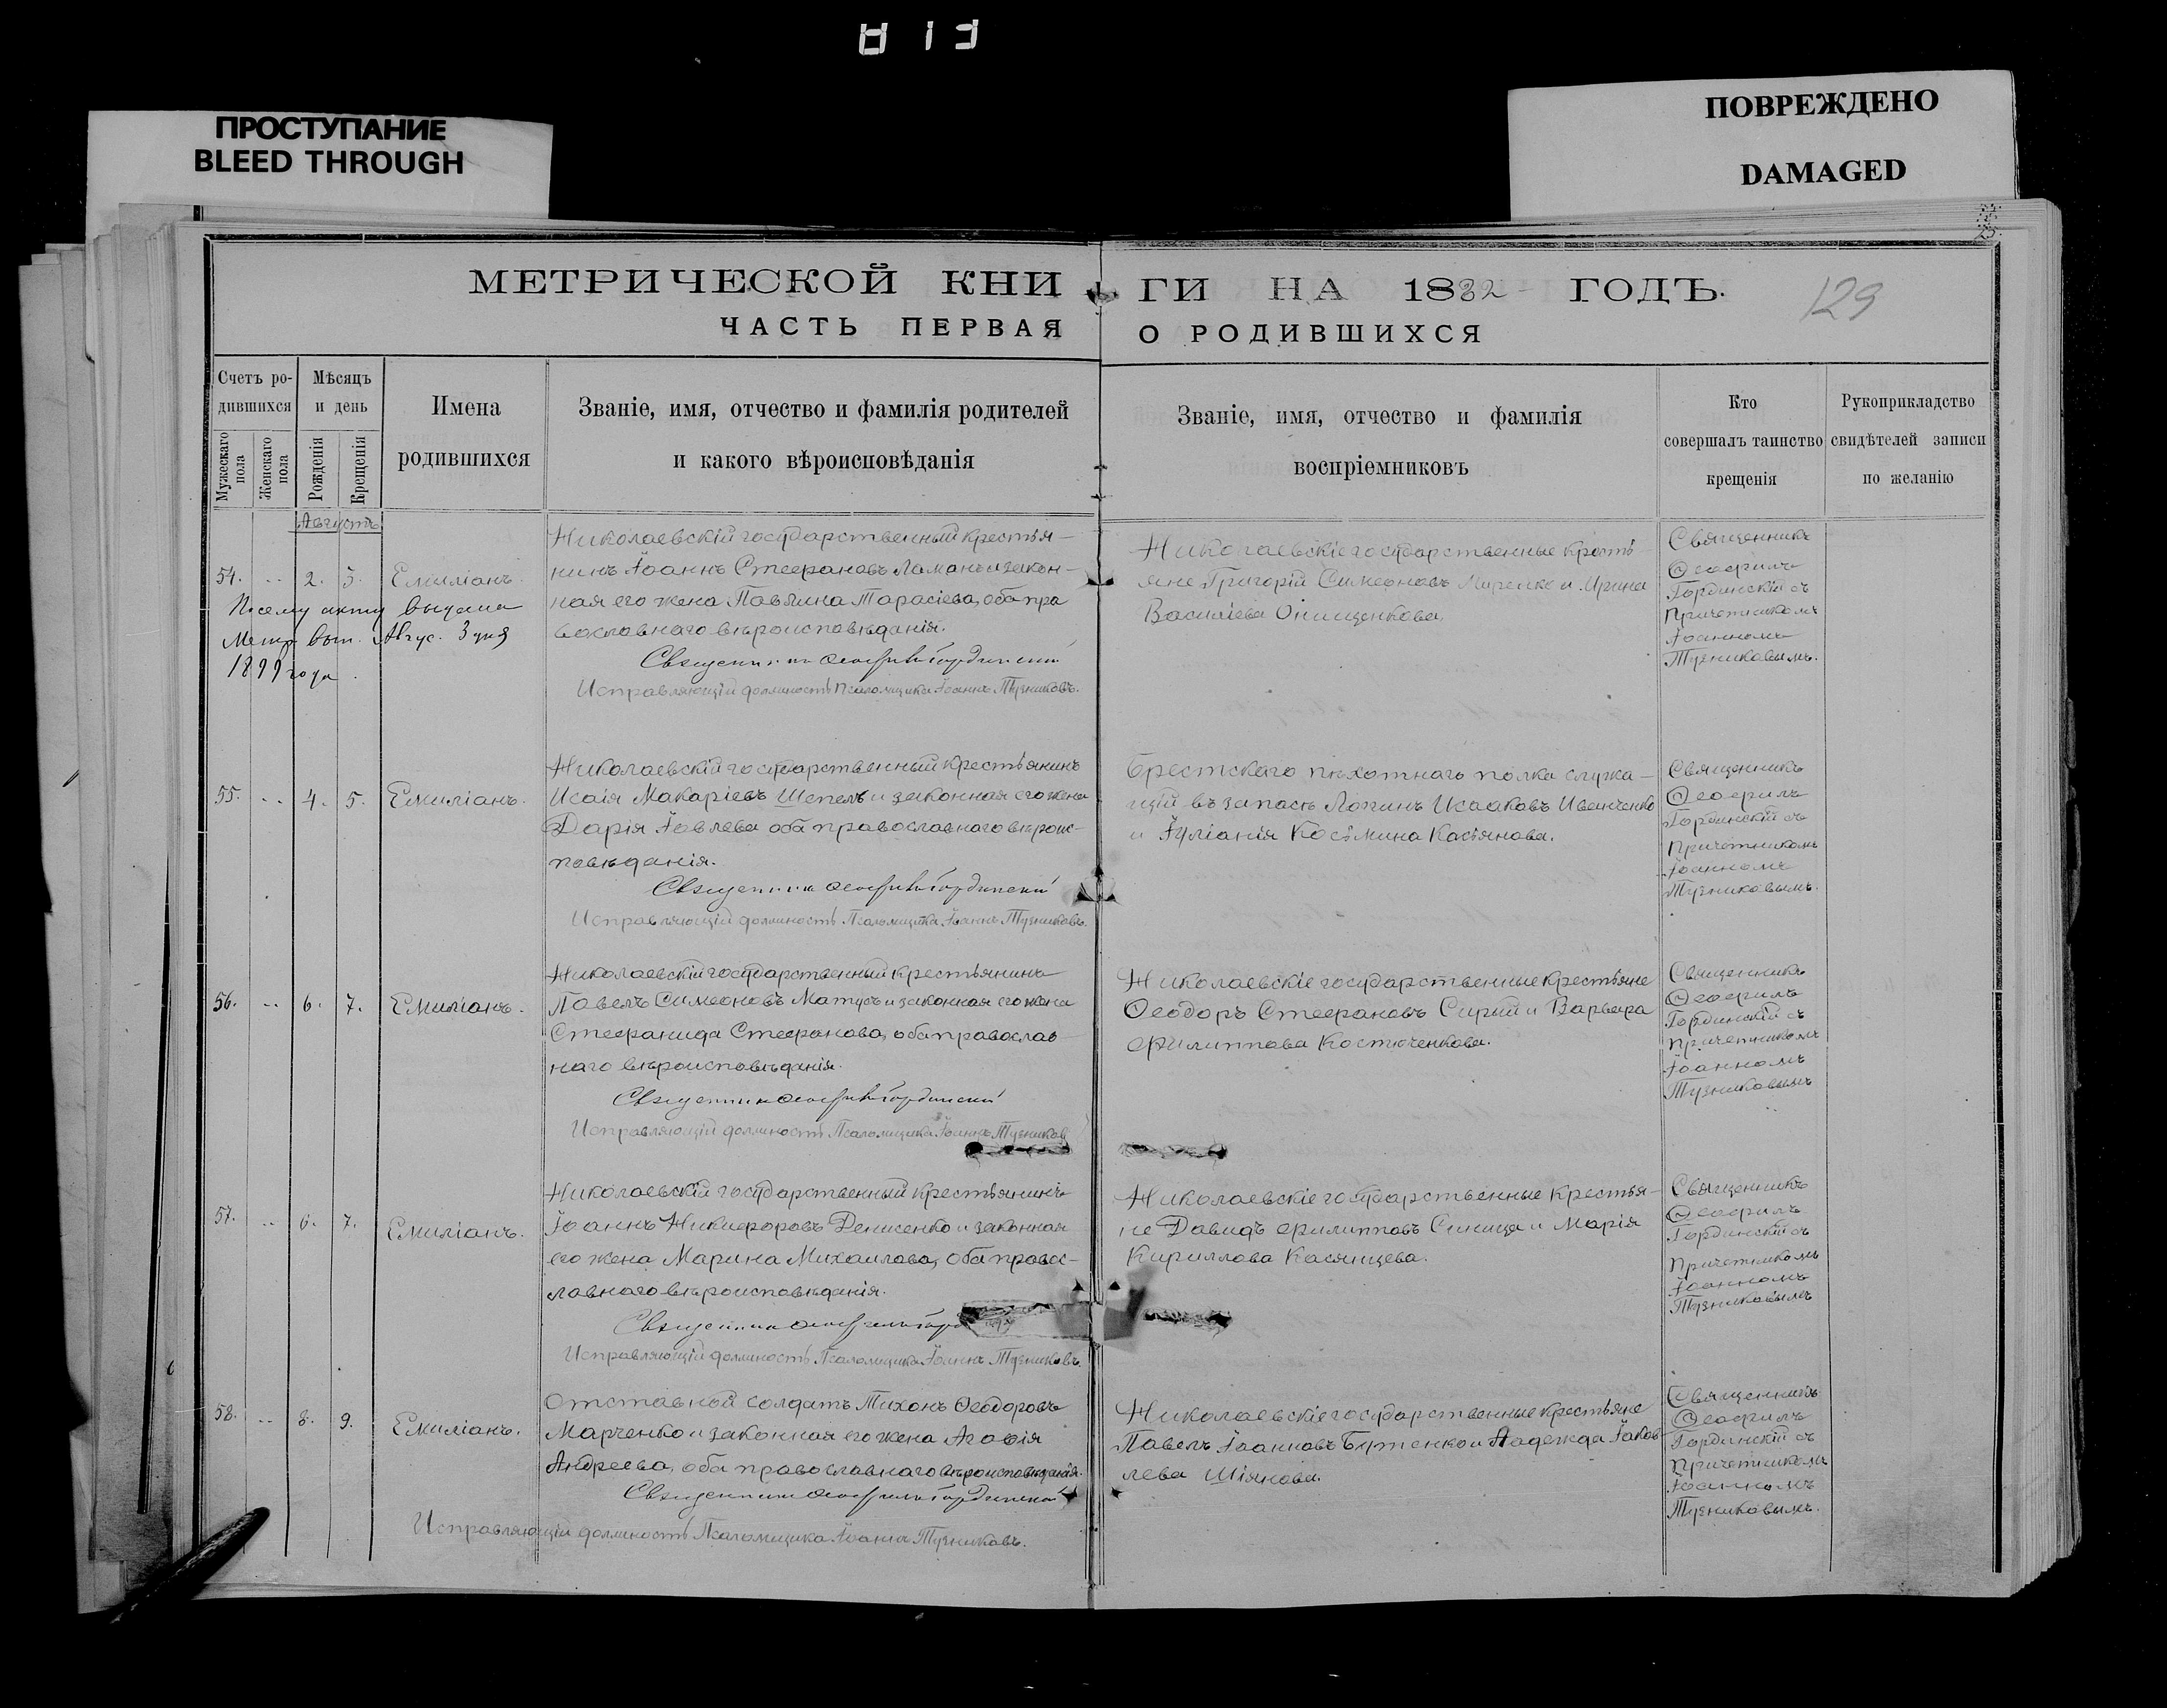 ПРОСТУПАНИЕ
BLEED THROUGH
ПОВРЕЖДЕНО
DAMAGED
МЕТРИЧЕСКОЙ КНИ ГИ НА 1882 ГОДЪ.
129
ЧАСТЬ ПЕРВАЯ О РОДИВШИХСЯ
Счетъ ро-
дившихся
Мужескаго пола
Женскаго пола
Мѣсяцъ
и день
Рожденія
Крещенія
Имена
родившихся
Званіе, имя, отчество и фамилія родителей
и какого вѣроисповѣданія
Званіе, имя, отчество и фамилія
воспріемниковъ
Кто
совершалъ таинство
крещенія
Рукоприкладство
свидѣтелей записи
по желанію
Августъ
54. 2. 3. Емиліанъ.
По сему акту выдана
Метр. вып. Авгус. 3 дня
1899 года
Николаевскій государственный крестья-
нинъ Іоаннъ Стефановъ Ламанъ и закон-
ная его жена Павлина Тарасіева, оба пра
вославнаго вѣроисповѣданія.
Священникъ Ѳеофилъ Гординскій
Исправляющій должность Псаломщика Іоаннъ Тузниковъ.
Николаевскіе государственные кресть-
яне Григорій Симеоновъ и Ирина
Василіева Онищенкова.
Священникъ
Ѳеофилъ
Гординскій съ
Причетникомъ
Іоанномъ
Тузниковымъ.
55. 4. 5. Емиліанъ.
Николаевскій государственный крестьянинъ
Исаія Макаріевъ Шепель и законная его жена
Дарія Іовлева оба православнаго вѣроис-
повѣданія.
Священникъ Ѳеофилъ Гординскій
Исправляющій должность Псаломщика Іоаннъ Тузниковъ.
Брестскаго пѣхотнаго полка служа-
щій въ запасѣ Логинъ Исааковъ Иванченко
и Іуліанія Косьмина Касьянова.
Священникъ
Ѳеофилъ
Гординскій съ
Причетникомъ
Іоанномъ
Тузниковымъ.
56. 6. 7. Емиліанъ.
Николаевскій государственный крестьянинъ
Павелъ Симеоновъ Матусъ и законная его жена
Стефанида Стефанова, оба православ-
наго вѣроисповѣданія.
Священникъ Ѳеофилъ Гординскій
Исправляющій должность Псаломщика Іоаннъ Тузниковъ
Николаевскіе государственные крестьяне
Ѳеодоръ Стефановъ Сирый и Варвара
Филиппова Костюченкова.
Священникъ
Ѳеофилъ
Гординскій съ
Причетникомъ
Іоанномъ
Тузниковымъ
57. 6. 7. Емиліанъ.
Николаевскій государственный крестьянинъ
Іоаннъ Никифоровъ Денисенко и законная
его жена Марина Михаилова, оба правос-
лавнаго вѣроисповѣданія.
Священникъ Ѳеофилъ
Исправляющій должность Псаломщика Іоаннъ Тузниковъ.
Николаевскіе государственные крестья-
не Давидъ Филипповъ Синица и Марія
Кириллова Касянцева.
Священникъ
Ѳеофилъ
Гординскій съ
Причетникомъ
Іоанномъ
Тузниковымъ
58. 8. 9. Емиліанъ.
Отставной солдатъ Тихонъ Ѳеодоровъ
Марченко и законная его жена Агафія
Андреева, оба православнаго вѣроисповѣданія.
Священникъ Ѳеофилъ Гординскій
Исправляющій должность Псаломщика Іоаннъ Тузниковъ.
Николаевскіе государственные крестьяне
Павелъ Іоанновъ Бутенко и Надежда Іаков
лева Шіянова.
Священникъ
Ѳеофилъ
Гординскій съ
Причетникомъ
Іоанномъ
Тузниковымъ.